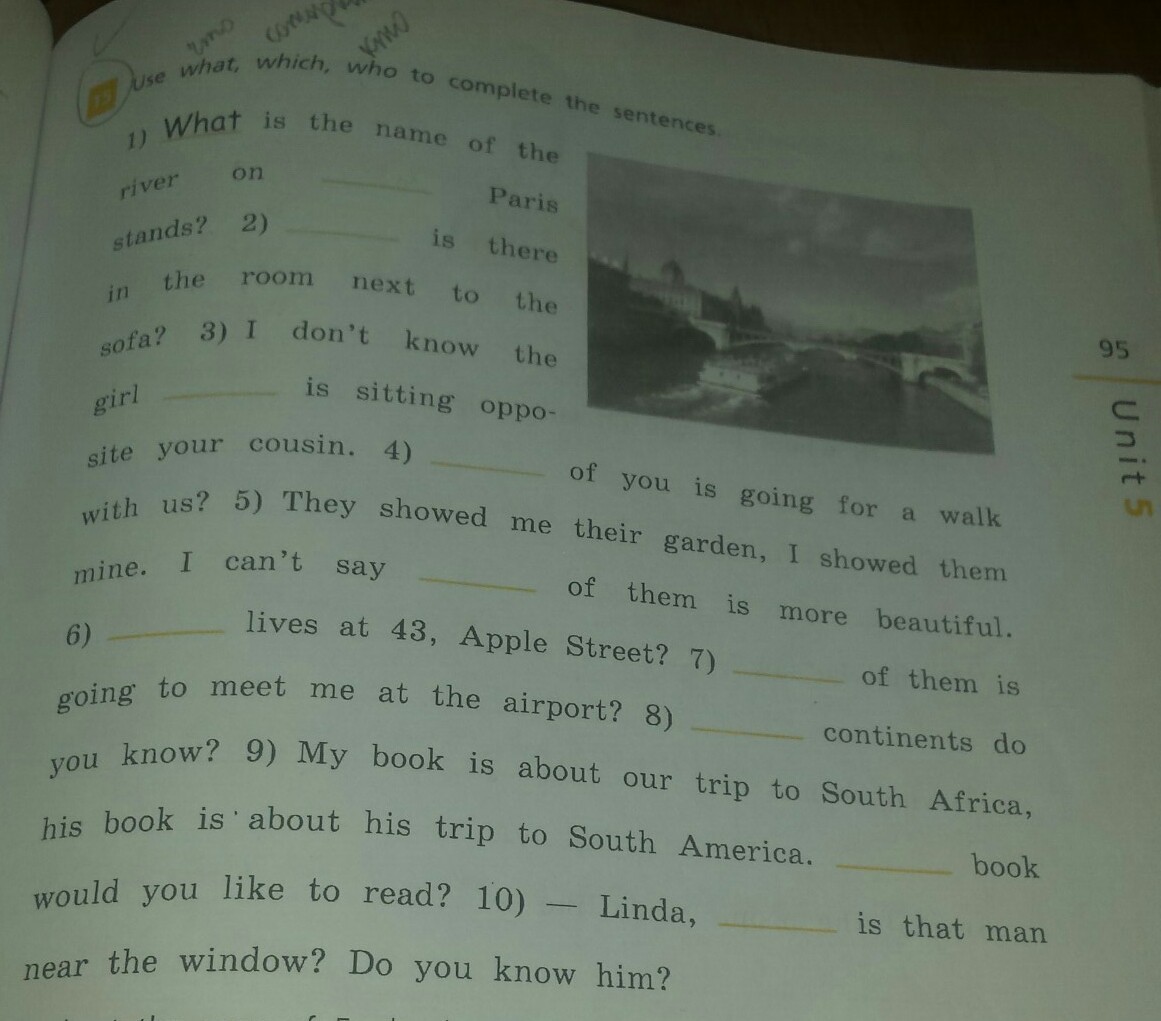 что кто
15 Use what, which, who to complete the sentences.
1) What is the name of the
river on ______ Paris
stands? 2) ______ is there
in the room next to the
sofa? 3) I don't know the
girl ______ is sitting oppo-
site your cousin. 4) ______ of you is going for a walk
with us? 5) They showed me their garden, I showed them
mine. I can't say ______ of them is more beautiful.
6) ______ lives at 43, Apple Street? 7) ______ of them is
going to meet me at the airport? 8) ______ continents do
you know? 9) My book is about our trip to South Africa,
his book is about his trip to South America. ______ book
would you like to read? 10) — Linda, ______ is that man
near the window? Do you know him?
95
Unit 5